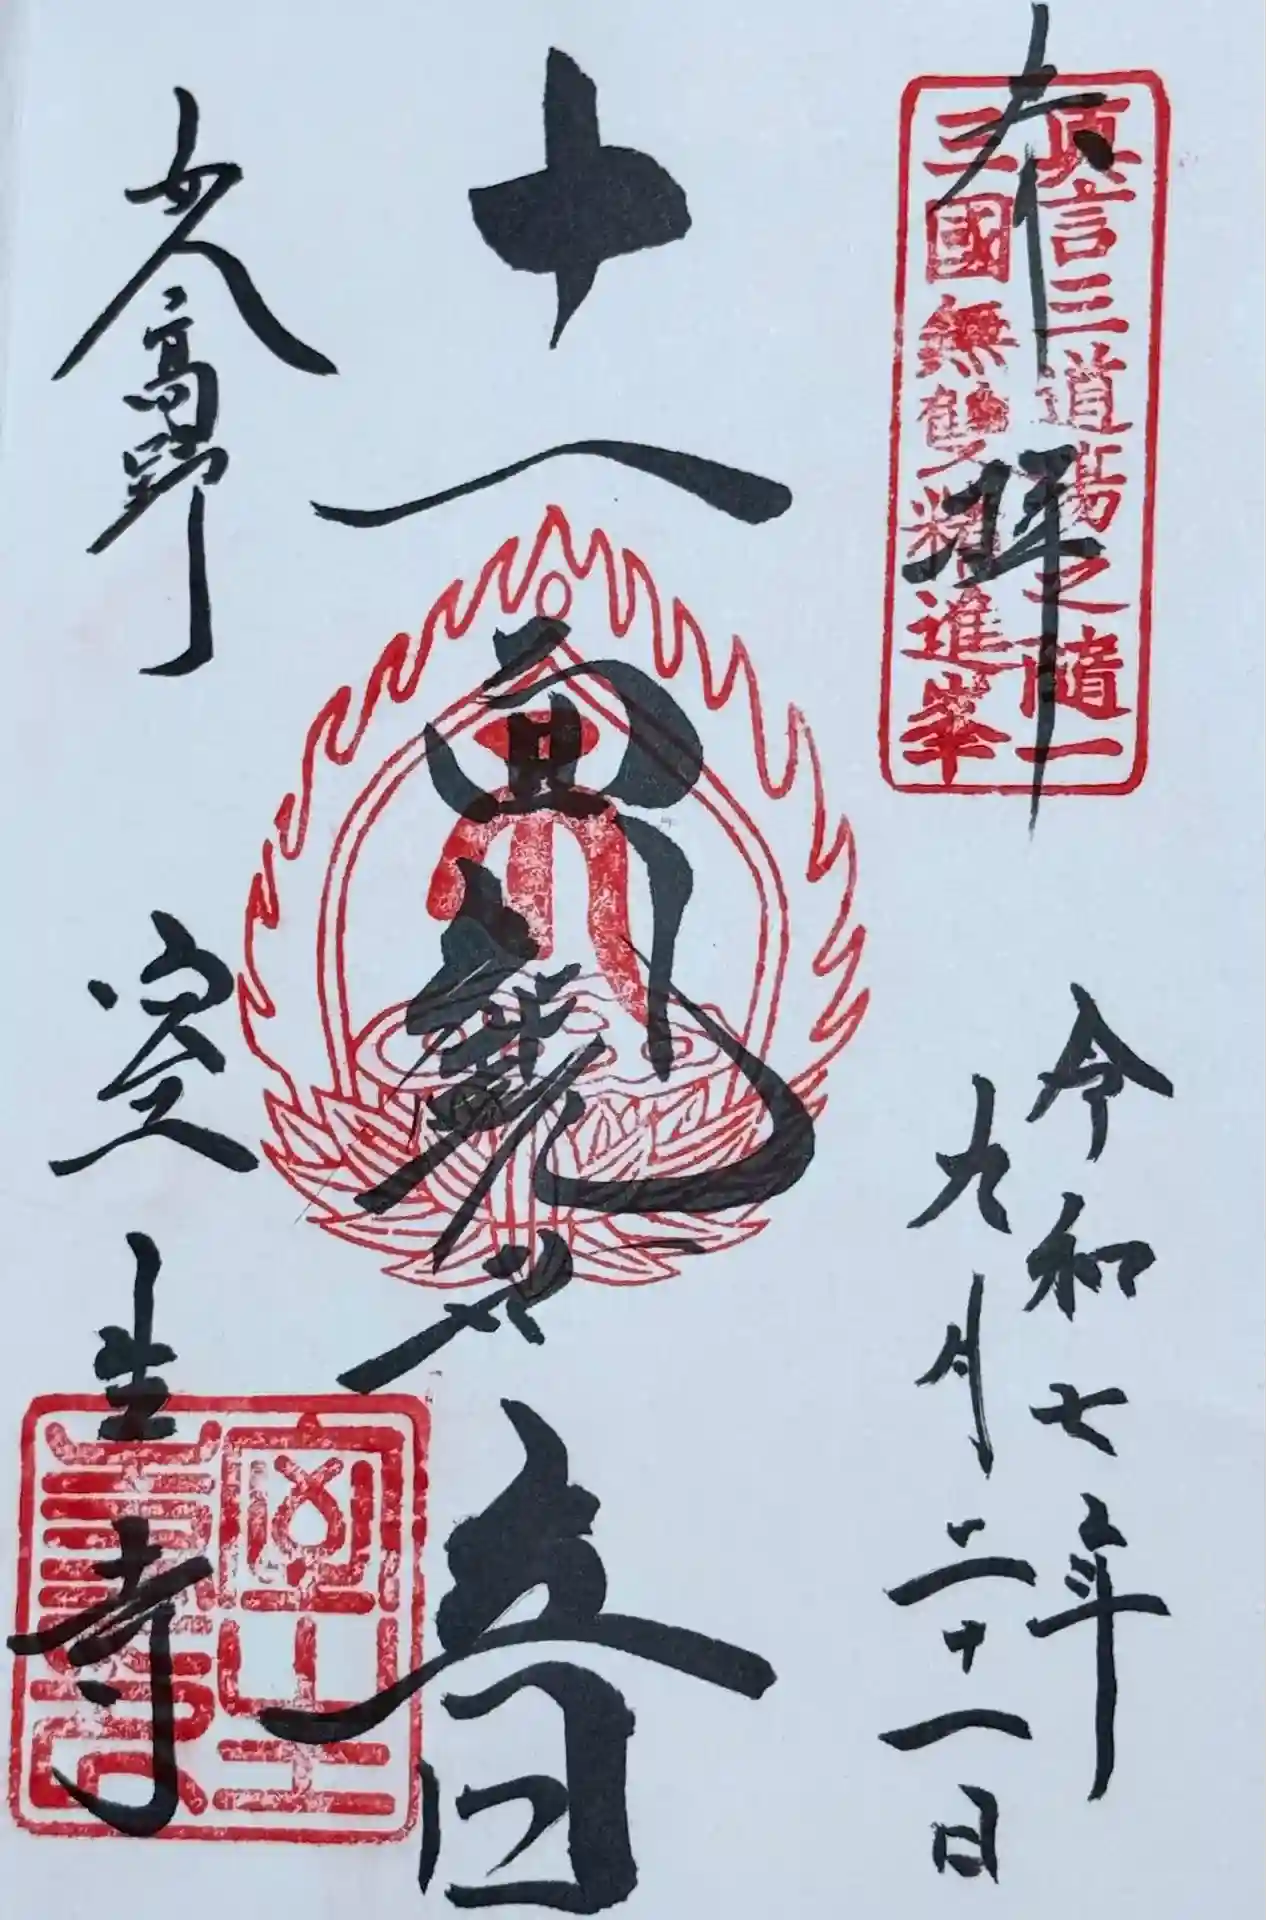 奉拝
真言三道場之随一
三國無雙精進峯
令和七年
九月二十一日
十一面観世音
女人高野
室生寺